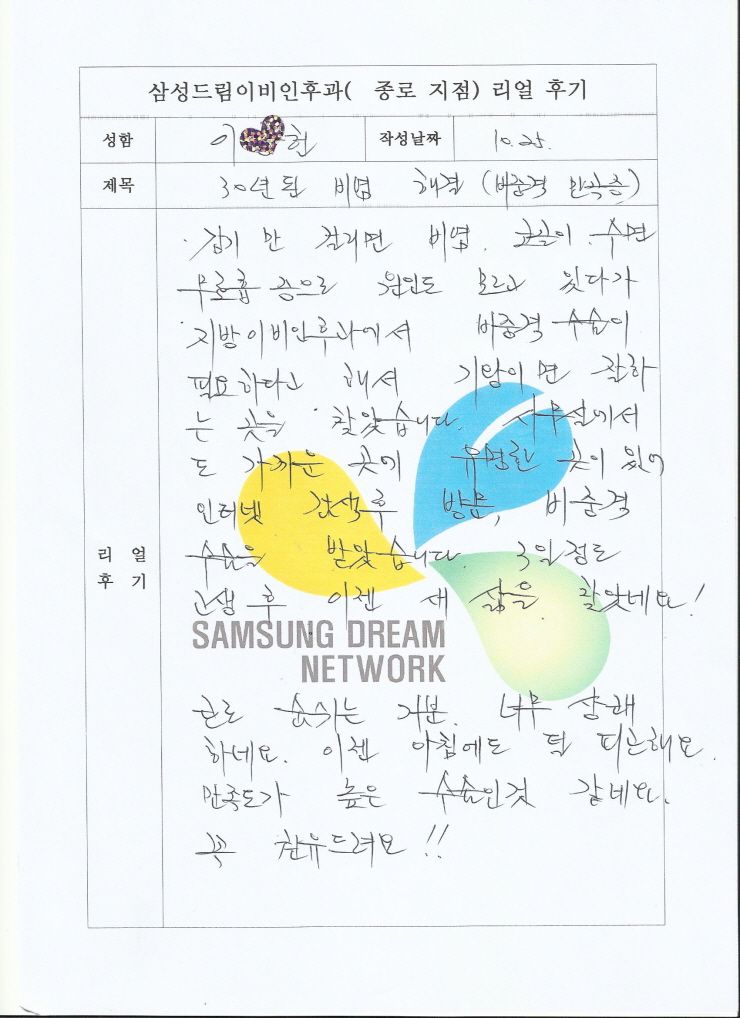 삼성드림이비인후과( 종로 지점) 리얼 후기
성함 이 헌 작성날짜 10.25.
제목 30년된 비염 해결 (비중격 만곡증)
감기만 걸리면 비염. 코골이. 수면
무호흡 증으로 원인도 모르고 있다가
지방이비인후과에서 비중격 수술이
필요하다고 해서 기왕이면 잘하
는 곳을 찾았습니다. 사무실에서
도 가까운 곳에 유명한 곳이 있어
인터넷 검색 후 방문, 비중격
리 얼 후 기
수술을 받았습니다. 3일정도
고생 후 이젠 새 삶을 찾았네요!
SAMSUNG DREAM
NETWORK
코로 숨쉬는 기분. 너무 상쾌
하네요. 이젠 아침에도 덜 피곤해요.
만족도가 높은 수술인것 같네요.
꼭 권유드려요!!